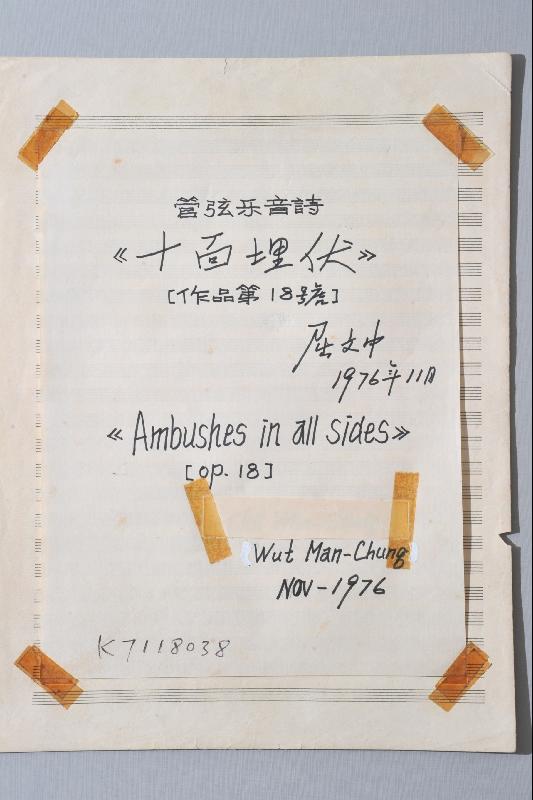 管弦乐音詩
《十面埋伏》
[作品第18號]
屈文中
1976年11月
《Ambushes in all sides》
[op. 18]
Wut Man-Chung
NOV-1976
K7118038